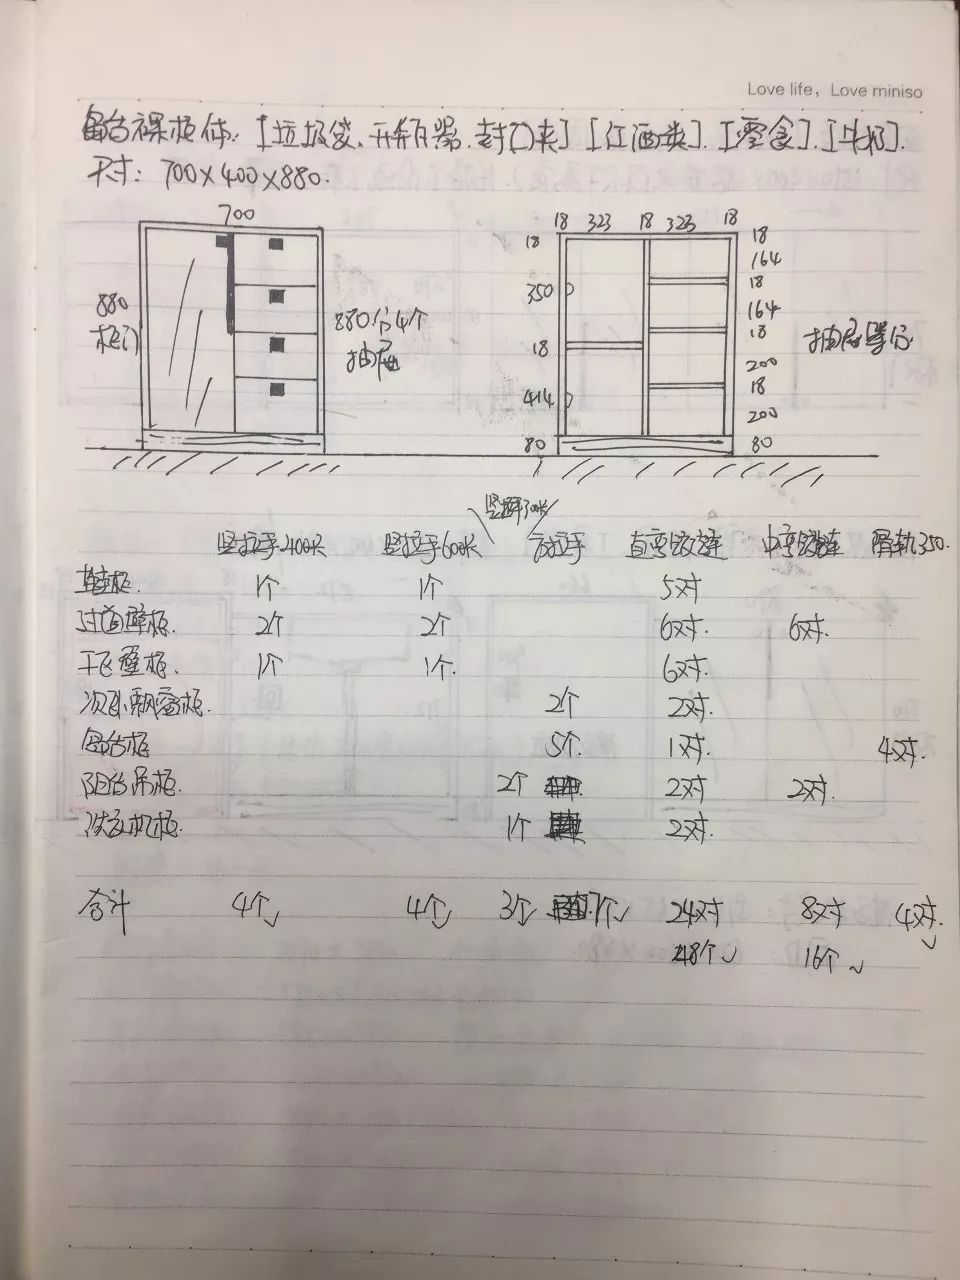 Love life, Love miniso
台裸柜体：[垃圾袋、开瓶器、封口夹][红酒类].[零食].[牛奶].
尺寸：700×400×880.
700
18 323 18 323 18
18
18
164
350
18
880
柜门
880分4个
抽屉
164
18
18
抽屉等分
200
18
414
200
80
80
竖拉手300长
竖拉手400长 竖拉手600长 拉手 直弯铰链 中弯铰链 滑轨350.
鞋柜. 1个 1个 5对
过道壁柜. 2个 2个 6对. 6对.
壁柜. 1个 1个. 6对.
次卧飘窗柜. 2个 2对.
台柜 5个. 1对. 4对.
阳台吊柜. 2个 2对 2对.
洗衣机柜. 1个 2对
合计 4个 4个 3个 7个 24对 8对 4对.
48个 16个